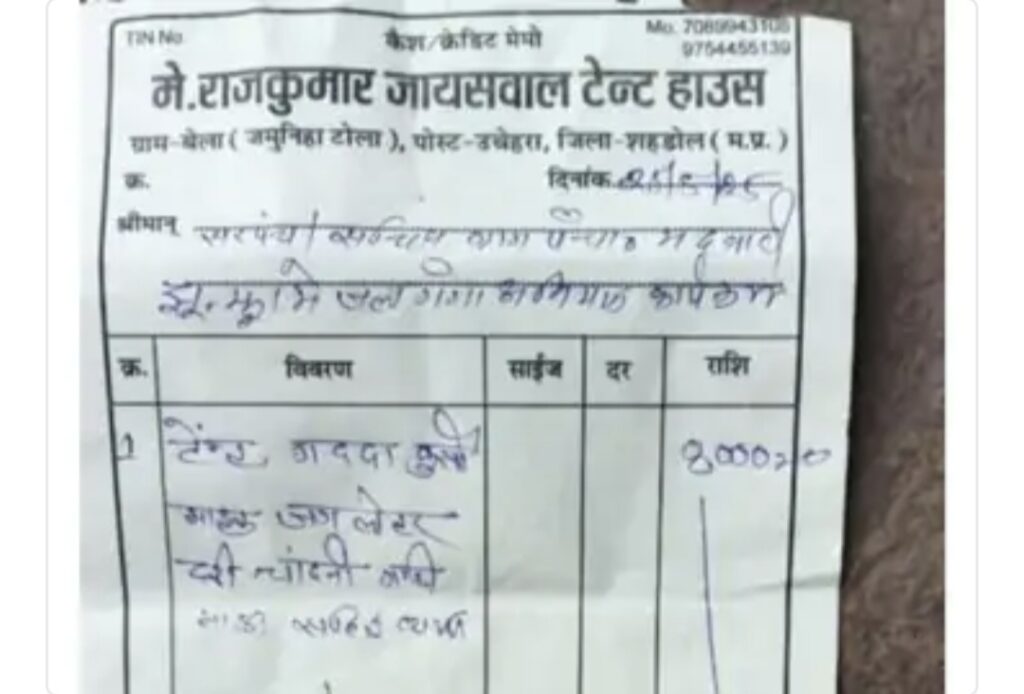 TIN No.
कैश/क्रेडिट मेमो
Mo. 7089943108
9754455139
मे.राजकुमार जायसवाल टेन्ट हाउस
ग्राम-बेला ( जमुनिहा टोला ), पोस्ट-उचेहरा, जिला-शहडोल ( म.प्र. )
क्र. दिनांक 25/5/25
श्रीमान् सरपंच / सचिव ग्राम पंचा०
जल गंगा कार्यक्रम
क्र. विवरण साईज दर राशि
1 टेंन्ट, गददा कुर्सी
माइक जनरेटर
दरी चांदनी
सहित